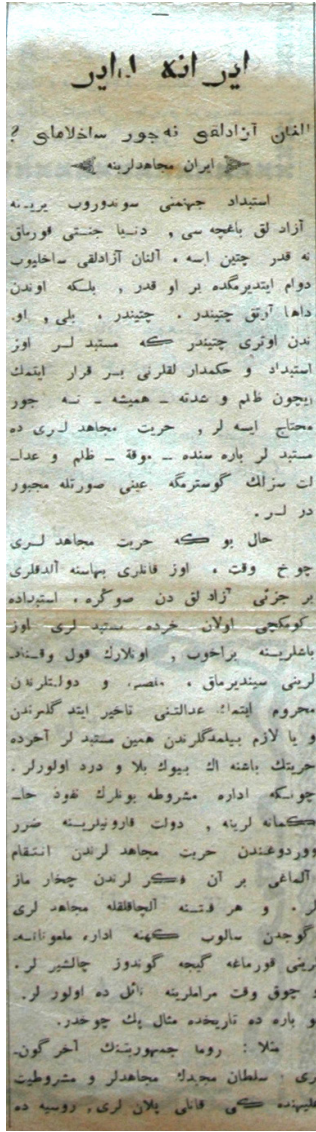 ایرانه دایر
النان آزادلقی نه‌جور ساخلامالی ؟
ایران مجاهدلرینه
استبداد جهنمنی سوندوروب یرینه
آزاد لق باغچه سی , دنیا جنتی قورماق
نه قدر چتین ایسه ، آلنان آزادلقی ساخلیوب
دوام ایتدیرمگده بر او قدر , بلکه اوندن
داها آرتق چتیندر . چتیندر ، بلی , او
ندن اوتری چتیندر که مستبد لر اوز
استبداد و حکمدار لقلرنی بر قرار ایتمك
ایچون ظلم و شدته ـ همیشه ـ نه جور
محتاج ایسه لر , حریت مجاهد لری ده
مستبد لر باره سنده ـ موقة ـ ظلم و عدا
لت سزلك گوسترمگه عینی صورتله مجبور
در لر .
حال بو که حریت مجاهد لری
چوخ وقت ، اوز قانلری بهاسنه آلدقلری
بر جزئی آزاد لق دن صوگره ، استبداده
کومکچی اولان خرده مستبد لری اوز
باشلرینه براخوب , اونلارك قول و قنف
لرینی سیندیرماق ، منصب و دولتلرندن
محروم ایتمك عدالتنی تاخیر ایتد گلرندن
و یا لازم بیلمدگلرندن همین مستبد لر آخرده
حریتك باشنه اك بیوك بلا و درد اولورلر .
چونکه اداره مشروطه بونلرك نفوذ حا
کمانه لرینه , دولت قارونیلرینه ضرر
ووردوغندن حریت مجاهد لرندن انتقام
آلماغی بر آن فکر لرندن چخار ماز
لر . و هر فتنه آلچاقلقله مجاهد لری
گوجدن سالوب کهنه اداره ملعونانه
لرینی قورماغه گیجه گوندوز چالشیر لر .
و چوق وقت مراملرینه نائل ده اولور لر .
بو باره ده تاریخده مثال پك چوخدر.
مثلا : روما جمهوریتنك آخر گون
لری ، سلطان مجیدك مجاهدلر و مشروطیت
علیهنده کی قانلی پلان لری , روسیه ده